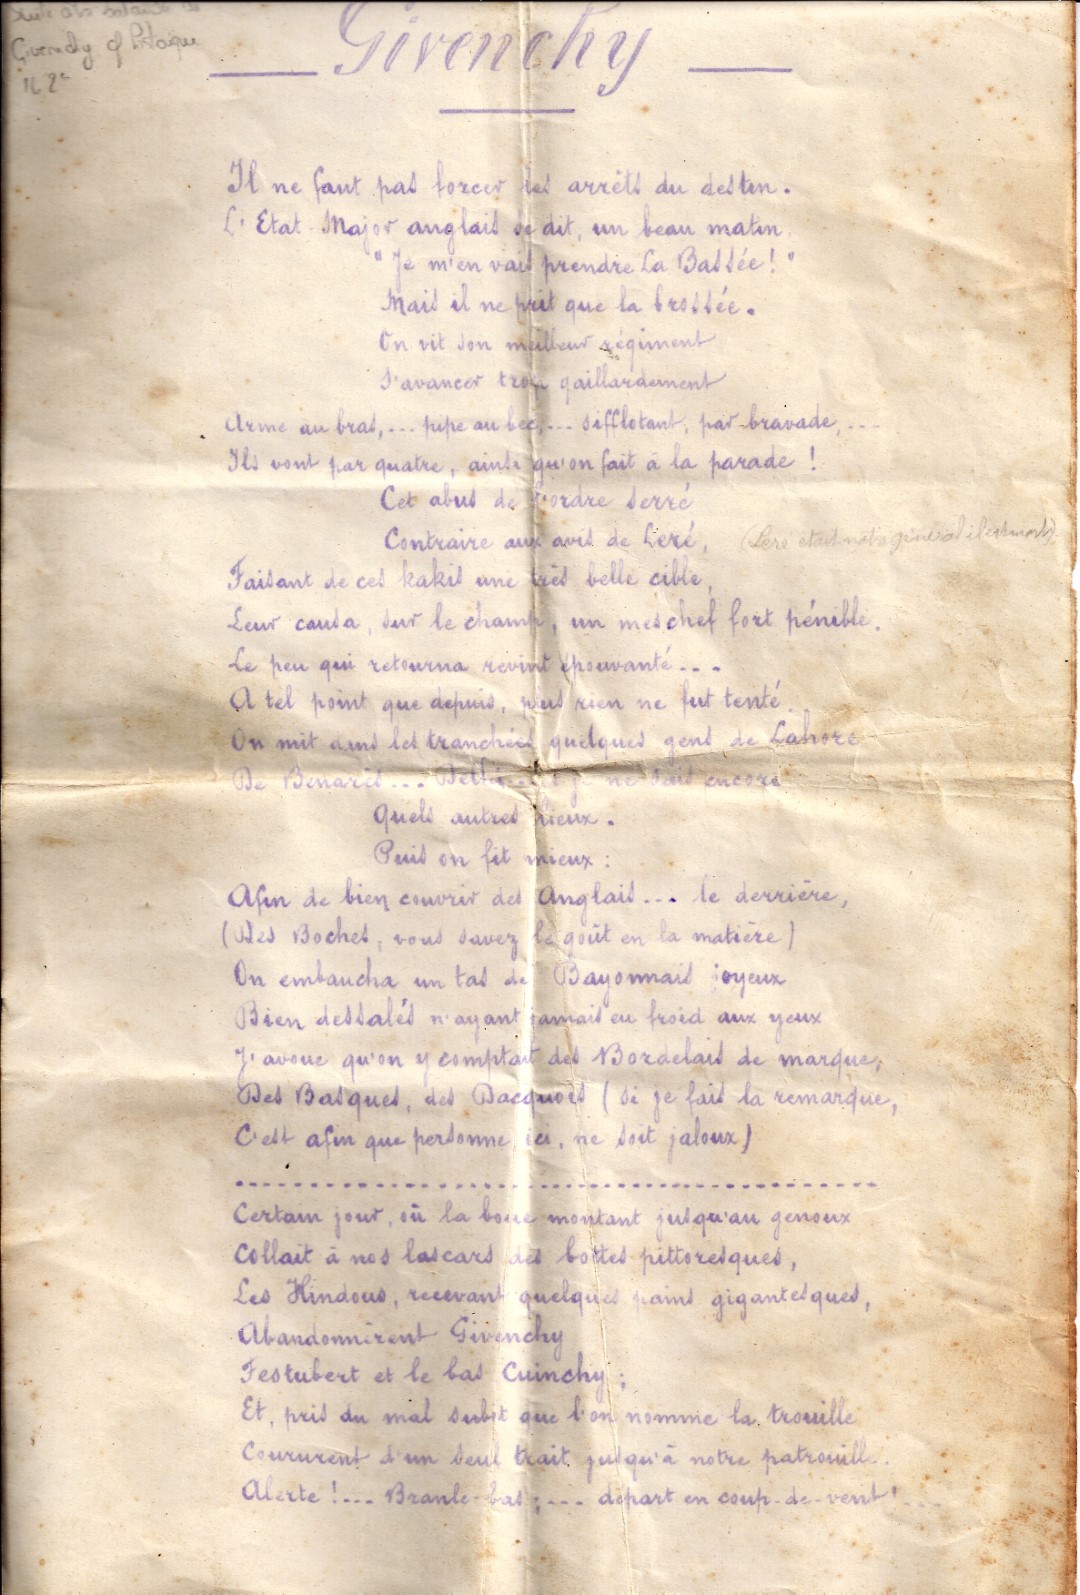 Givenchy of
Givenchy
Il ne faut pas forcer les arrêts du destin.
L'Etat-Major anglais se dit, un beau matin.
"Je m'en vais prendre La Bassée!"
Mais il ne prit que la brossée.
On vit son meilleur régiment
S'avancer trop gaillardement
Arme au bras, ... pipe au bec, ... sifflotant, par bravade, ...
Ils vont par quatre, ainsi qu'on fait à la parade !
Cet abus de l'ordre serré
Contraire aux avis de Leré, (Leré était notre général il est mort)
Faisant de ces kakis une très belle cible,
Leur causa, sur le champ, un meschef fort pénible.
Le peu qui retourna revint épouvanté ...
A tel point que depuis, plus rien ne fut tenté.
On mit dans les tranchées quelques gens de Lahore
De Benarès ... Delhi ... je ne sais encore
Quels autres lieux.
Puis on fit mieux :
Afin de bien couvrir des Anglais ... le derrière,
(Des Boches, vous savez le goût en la matière)
On embaucha un tas de Bayonnais joyeux
Bien dessalés n'ayant jamais eu froid aux yeux
J'avoue qu'on y comptait des Bordelais de marque,
Des Basques, des Dacquois (si je fais la remarque,
C'est afin que personne, ici, ne soit jaloux)
Certain jour, où la boue montant jusqu'au genoux
Collait à nos lascars des bottes pittoresques,
Les Hindous, recevant quelques pains gigantesques,
Abandonnèrent Givenchy
Festubert et le bas Cuinchy ;
Et, pris du mal subit que l'on nomme la trouille
Coururent d'un seul trait jusqu'à notre patrouille.
Alerte ! ... Branle-bas ; ... départ en coup-de-vent ! ...